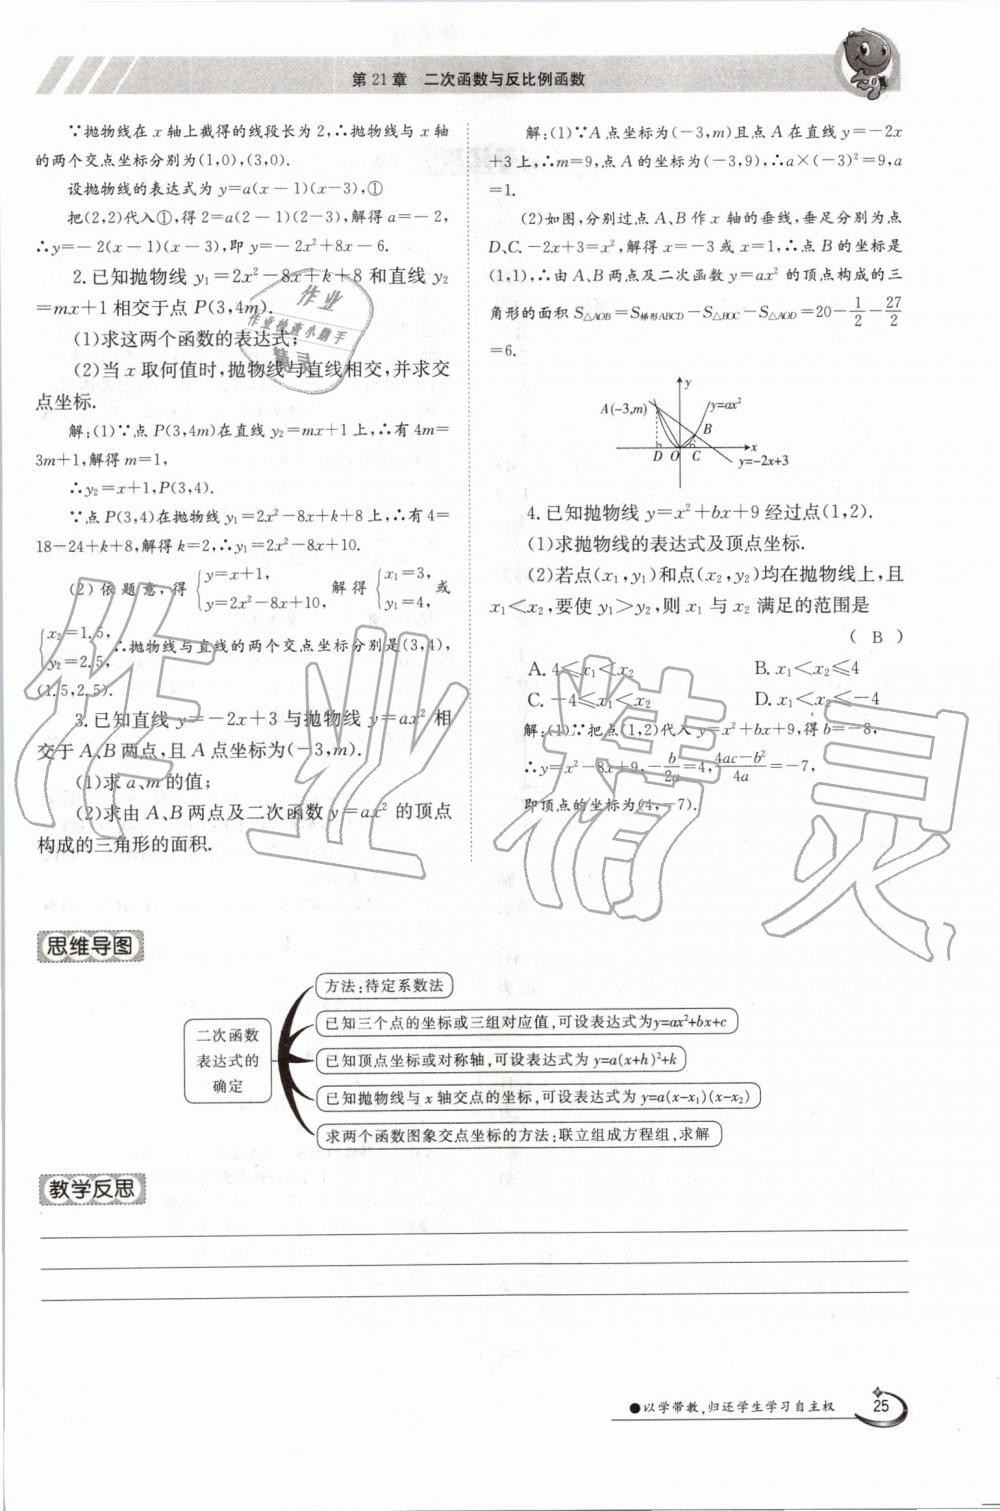 第21章 二次函数与反比例函数
∵抛物线在x轴上截得的线段长为2,∴抛物线与x轴
的两个交点坐标分别为(1,0),(3,0).
设抛物线的表达式为y=a(x-1)(x-3),①
把(2,2)代入①,得2=a(2-1)(2-3),解得a=-2,
∴y=-2(x-1)(x-3),即y=-2x²+8x-6.
2.已知抛物线y₁=2x²-8x+k+8和直线y₂
=mx+1相交于点P(3,4m).
(1)求这两个函数的表达式;
(2)当x取何值时,抛物线与直线相交,并求交
点坐标.
解:(1)∵点P(3,4m)在直线y₂=mx+1上,∴有4m=
3m+1,解得m=1,
∴y₂=x+1,P(3,4).
∵点P(3,4)在抛物线y₁=2x²-8x+k+8上,∴有4=
18-24+k+8,解得k=2,∴y₁=2x²-8x+10.
(2)依题意,得{y=x+1, y=2x²-8x+10, 解得{x₁=3, y₁=4, 或
{x₂=1.5, y₂=2.5, ∴抛物线与直线的两个交点坐标分别是(3,4),
(1.5,2.5).
3.已知直线y=-2x+3与抛物线y=ax²相
交于A、B两点,且A点坐标为(-3,m).
(1)求a、m的值;
(2)求由A、B两点及二次函数y=ax²的顶点
构成的三角形的面积.
解:(1)∵A点坐标为(-3,m)且点A在直线y=-2x
+3上,∴m=9,点A的坐标为(-3,9),∴a×(-3)²=9,a
=1.
(2)如图,分别过点A、B作x轴的垂线,垂足分别为点
D、C.-2x+3=x²,解得x=-3或x=1,∴点B的坐标是
(1,1),∴由A、B两点及二次函数y=ax²的顶点构成的三
角形的面积S△AOB=S梯形ABCD-S△BOC-S△AOD=20-1/2-27/2
=6.
y
A(-3,m)
y=ax²
B
x
D O C
y=-2x+3
4.已知抛物线y=x²+bx+9经过点(1,2).
(1)求抛物线的表达式及顶点坐标.
(2)若点(x₁,y₁)和点(x₂,y₂)均在抛物线上,且
x₁<x₂,要使y₁>y₂,则x₁与x₂满足的范围是
( B )
A.4≤x₁<x₂ B.x₁<x₂≤4
C.-4≤x₁<x₂ D.x₁<x₂≤-4
解:(1)∵把点(1,2)代入y=x²+bx+9,得b=-8,
∴y=x²-8x+9,-b/2a=4,(4ac-b²)/4a=-7,
即顶点的坐标为(4,-7).
作业
作业检查小助手
精灵
作业精灵
思维导图
二次函数
表达式的
确定
方法:待定系数法
已知三个点的坐标或三组对应值,可设表达式为y=ax²+bx+c
已知顶点坐标或对称轴,可设表达式为y=a(x+h)²+k
已知抛物线与x轴交点的坐标,可设表达式为y=a(x-x₁)(x-x₂)
求两个函数图象交点坐标的方法:联立组成方程组,求解
教学反思
●以学带教,归还学生学习自主权
25